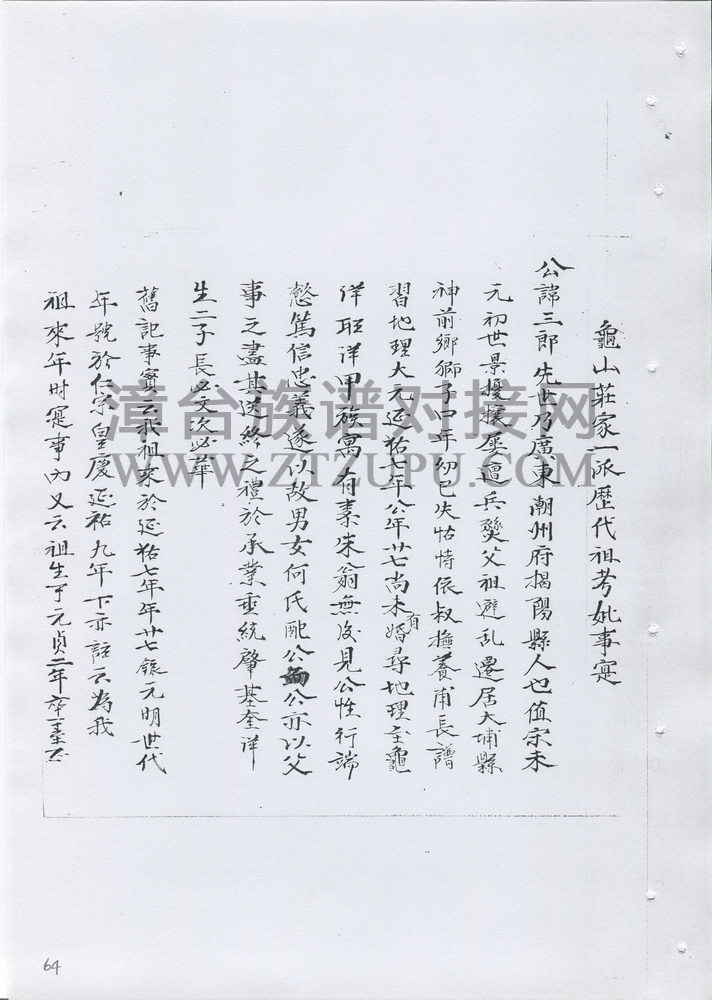 龜山莊家一派歷代祖考妣事寔
公諱三郎先世乃廣東潮州府揭陽縣人也值宗末
元初世景擾攘屡遭兵燹父祖避乱遷居大埔縣
神前鄉鄉子口年幼已失怙恃依叔撫養甫長諳
習地理大元延祐七年公年廿七尚未婚有尋地理至龜
洋聪洋甲族寓有素朱翁無後見公性行端
慤篤信忠義遂以故男女何氏配公公亦以父
事之盡其送終之禮於承業垂統肇基奎洋
生二子長必文次必華
舊記事寔云我祖來於延祐七年年廿七錄元明世代
年號於仁宗皇慶延祐九年下亦註云為我
祖來年时寔事内又云祖生于元貞二年卒墓在
漳台族谱对接网
WWW.ZTZUPU.COM
64